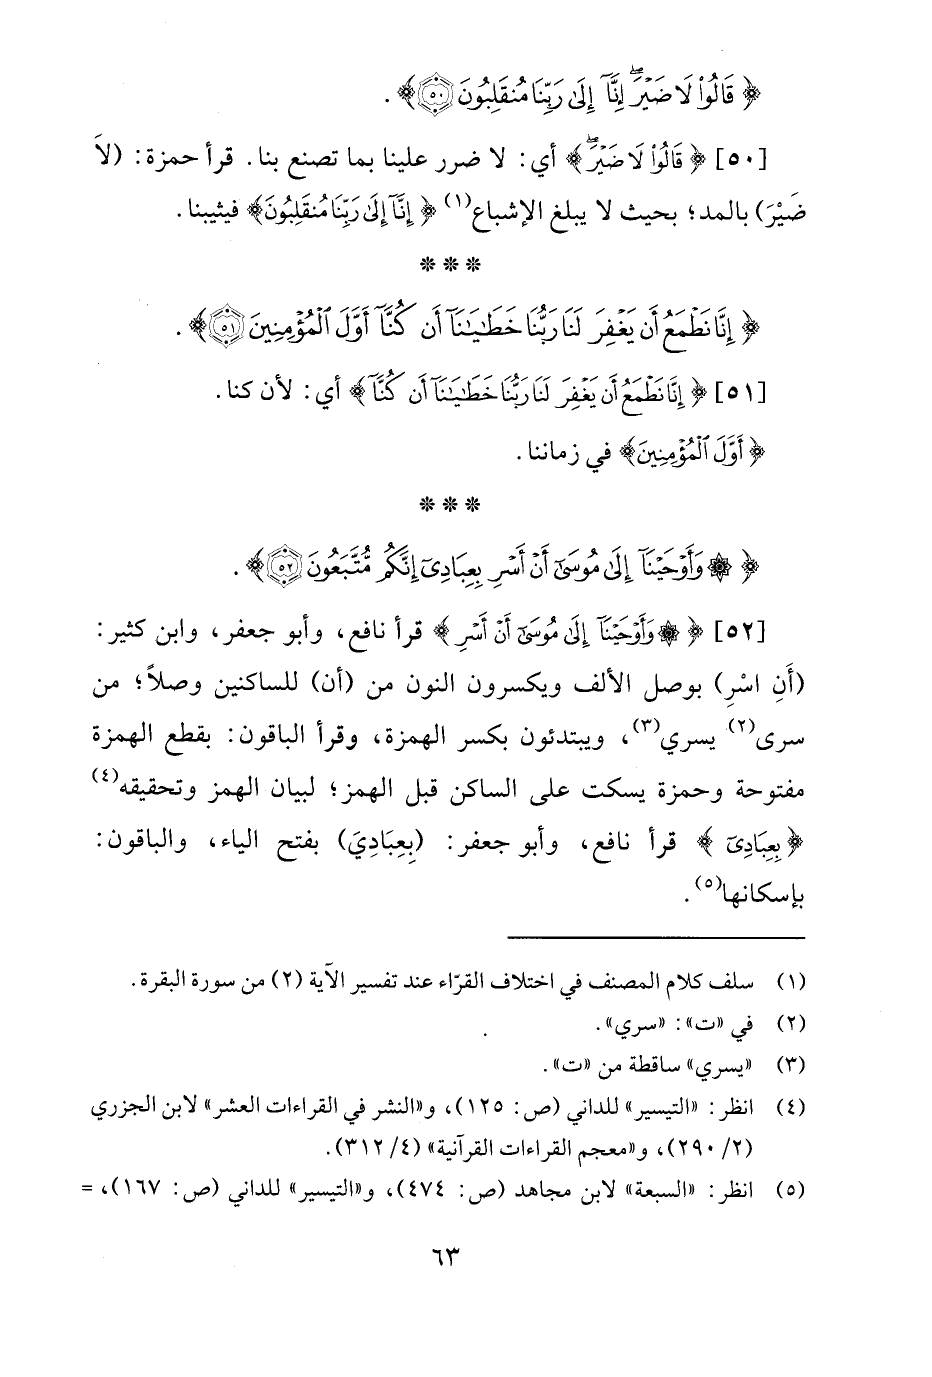 ﴿ قَالُوا۟ لَا ضَيْرَ ۖ إِنَّآ إِلَىٰ رَبِّنَا مُنقَلِبُونَ ٥٠ ﴾ .
[٥٠] ﴿ قَالُوا۟ لَا ضَيْرَ ۖ ﴾ أي: لا ضرر علينا بما تصنع بنا. قرأ حمزة: (لاَ
ضَيْرَ) بالمد؛ بحيث لا يبلغ الإشباع(١) ﴿ إِنَّآ إِلَىٰ رَبِّنَا مُنقَلِبُونَ ﴾ فيثيبنا.
***
﴿ إِنَّا نَطْمَعُ أَن يَغْفِرَ لَنَا رَبُّنَا خَطَـٰيَـٰنَآ أَن كُنَّآ أَوَّلَ ٱلْمُؤْمِنِينَ ٥١ ﴾ .
[٥١] ﴿ إِنَّا نَطْمَعُ أَن يَغْفِرَ لَنَا رَبُّنَا خَطَـٰيَـٰنَآ أَن كُنَّآ ﴾ أي: لأن كنا.
﴿ أَوَّلَ ٱلْمُؤْمِنِينَ ﴾ في زماننا.
***
﴿ ۞ وَأَوْحَيْنَآ إِلَىٰ مُوسَىٰٓ أَنْ أَسْرِ بِعِبَادِىٓ إِنَّكُم مُّتَّبَعُونَ ٥٢ ﴾ .
[٥٢] ﴿ ۞ وَأَوْحَيْنَآ إِلَىٰ مُوسَىٰٓ أَنْ أَسْرِ ﴾ قرأ نافع، وأبو جعفر، وابن كثير:
(أَنِ اسْرِ) بوصل الألف ويكسرون النون من (أن) للساكنين وصلاً؛ من
سرى(٢) يسري(٣)، ويبتدئون بكسر الهمزة، وقرأ الباقون: بقطع الهمزة
مفتوحة وحمزة يسكت على الساكن قبل الهمز؛ لبيان الهمز وتحقيقه(٤)
﴿ بِعِبَادِىٓ ﴾ قرأ نافع، وأبو جعفر: (بِعِبَادِيَ) بفتح الياء، والباقون:
بإسكانها(٥).
(١) سلف كلام المصنف في اختلاف القرّاء عند تفسير الآية (٢) من سورة البقرة.
(٢) في «ت»: «سري».
(٣) «يسري» ساقطة من «ت».
(٤) انظر: «التيسير» للداني (ص: ١٢٥)، و«النشر في القراءات العشر» لابن الجزري
(٢/ ٢٩٠)، و«معجم القراءات القرآنية» (٤/ ٣١٢).
(٥) انظر: «السبعة» لابن مجاهد (ص: ٤٧٤)، و«التيسير» للداني (ص: ١٦٧)، =
٦٣